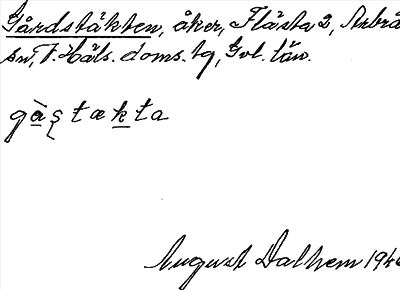 Gårdstäkten, åker, Flästa 2, Arbrå
sn, V. Häls. doms. tg, Gvl. län.
gàştækta
August Dalhem 194